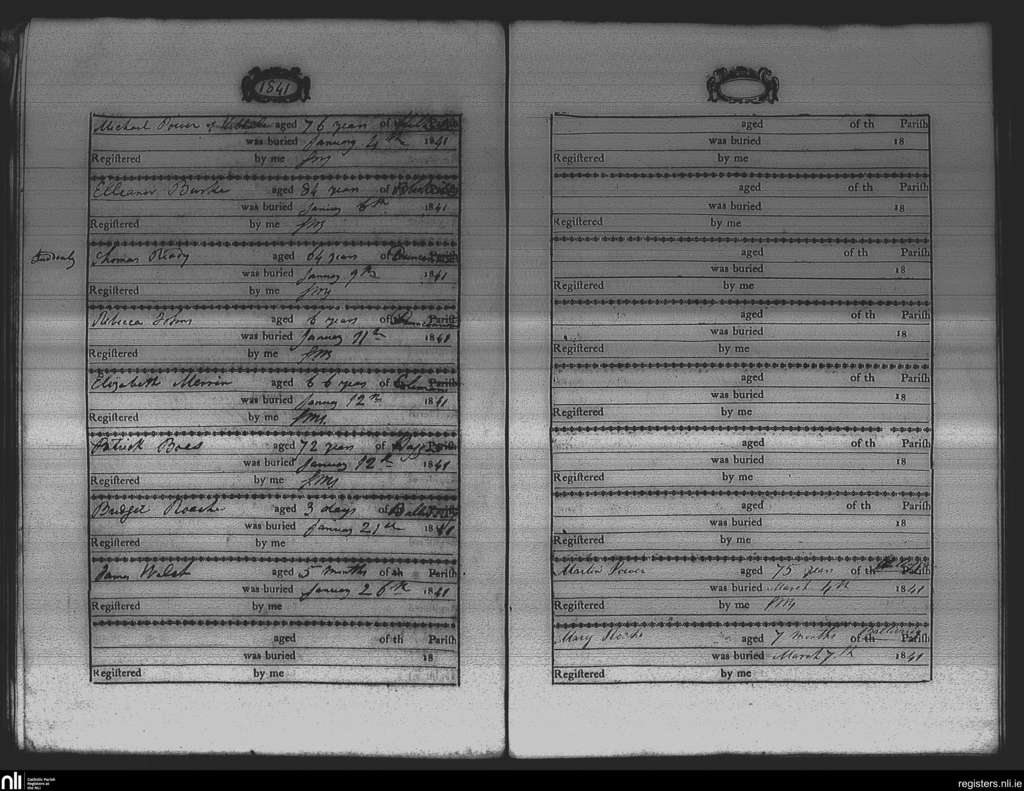 1841
Michael Power of aged 76 years of Parish
was buried January 4th 1841
Registered by me
Elleanor Burke aged 84 years of
was buried January 8th 1841
Registered by me
Suddenly
Thomas Ready aged 64 years of
was buried January 9th 1841
Registered by me
Rebecca Johns aged 6 years of Parish
was buried January 11th 1841
Registered by me
Elizabeth Merrin aged 66 years of Parish
was buried January 12th 1841
Registered by me
Patrick Boes aged 72 years of Parish
was buried January 12th 1841
Registered by me
Bridget Roache aged 3 days of
was buried January 21st 1841
Registered by me
James Walsh aged 5 months of th Pariſh
was buried January 26th 1841
Regiſtered by me
aged of th Pariſh
was buried 18
Regiſtered by me
aged of th Pariſh
was buried 18
Regiſtered by me
aged of th Pariſh
was buried 18
Regiſtered by me
aged of th Pariſh
was buried 18
Regiſtered by me
aged of th Pariſh
was buried 18
Regiſtered by me
aged of th Pariſh
was buried 18
Regiſtered by me
aged of th Pariſh
was buried 18
Regiſtered by me
aged of th Pariſh
was buried 18
Regiſtered by me
Martin Power aged 75 years of th
was buried March 4th 1841
Regiſtered by me
Mary Roche aged 7 months of th Pariſh
was buried March 7th 1841
Regiſtered by me
nli
Catholic Parish
Registers at
the NLI
registers.nli.ie